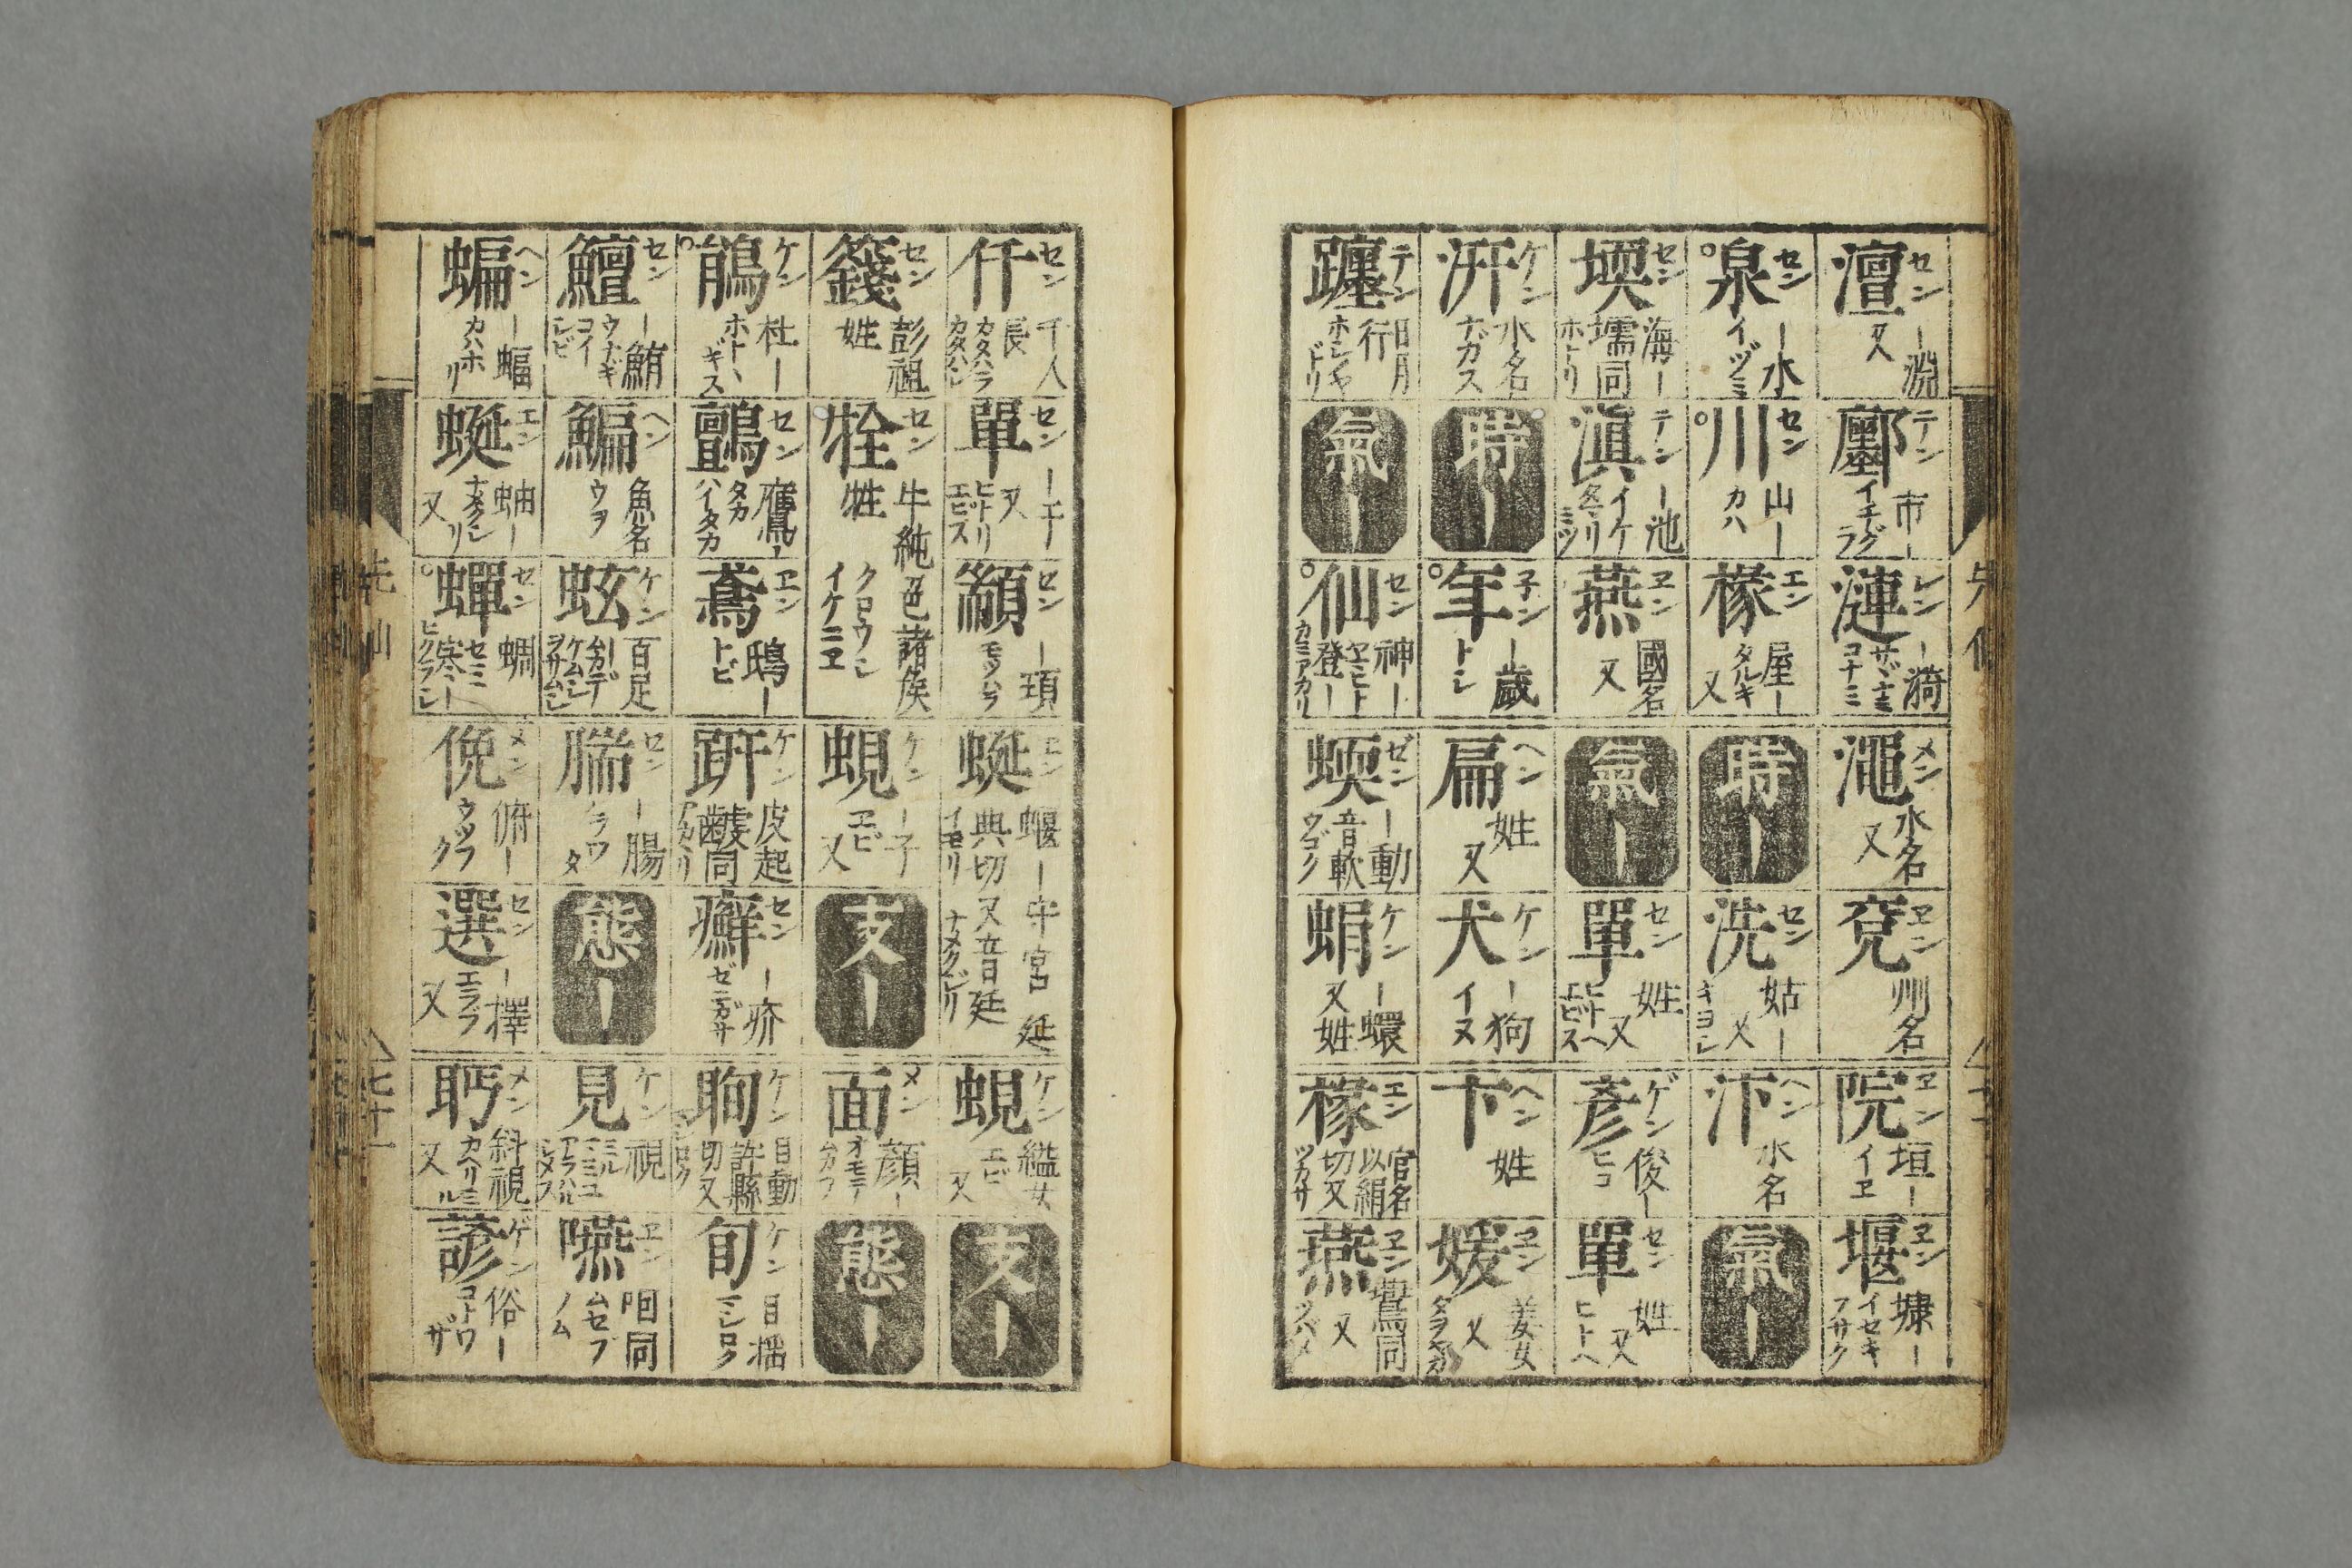 澶 セン ー淵 又
鄽 テン 市ー イチグラ
漣 レン ー漪 サヾナミ コナミ
澠 メン 水名 又
兗 ヱン 州名
院 ヱン 垣ー イヱ
堰 ヱン 壖ー イセキ フサク
泉 セン ー水 イヅミ
川 セン 山ー カハ
椽 エン 屋ー タルキ 又
時ー
洗 セン 姑ー 又 キヨシ
汴 ヘン 水名
氣ー
堧 セン 海ー 壖同 ホトリ
滇 テン ー池 イケ
燕 ヱン 國名 又
氣ー
單 セン 姓 又
彥 ゲン 俊ー ヒコ
單 セン 姓 又 ヒトヘ
汧 ケン 水名 ナガス
時ー
年 子ン ー歲 トシ
扁 ヘン 姓 又
犬 ケン ー狗 イヌ
卞 ヘン 姓
媛 ヱン 美女 又
躔 テン 日月行
氣ー
仙 セン 神ー 登ー
蝡 ゼン ー動 音軟 ウゴク
蜎 ケン ー蠉 又姓
椽 エン 官名 以絹切又 ツカサ
燕 ヱン 鷰同 又 ツバメ
仟 セン 千人長
單 セン ー于 又 ヒトリ エビス
顓 セン ー頊
蜒 エン 蝘ー守宮 延典切又音延 イモリ ナメクジリ
蜆 ケン 縊女 エビ 又
支ー
籛 セン 彭祖姓
牷 セン 牛純色諸侯牲 クロウシ イケニヱ
蜆 ケン ー子 エビ 又
支ー
面 メン 顏ー オモテ ムカフ
態ー
鵑 ケン 杜ー ホトヽギス
鸇 セン 鷹ー タカ ハイタカ
鳶 ヱン 鴟ー トビ
趼 ケン 皮起 同
癬 セン ー疥 ゼニガサ
眴 ケン 目動 許縣切又
旬 ケン 目搖
鱣 セン ー鮪 ウナギ コイ エビ
鯿 ヘン 魚名 ウヲ
蚿 ケン 百足 ムカデ
腨 セン ー腸
態ー
見 ケン 視
嚥 ヱン 咽同 ムセブ ノム
蝙 ヘン ー蝠 カハホリ
蜒 エン 蚰ー 又
蟬 セン 蜩 セミ 寒ー
俛 メン 俯ー ウツフク
選 セン ー擇 エラブ 又
眄 メン 斜視 又
諺 ゲン 俗ー コトワザ
先仙
七十一